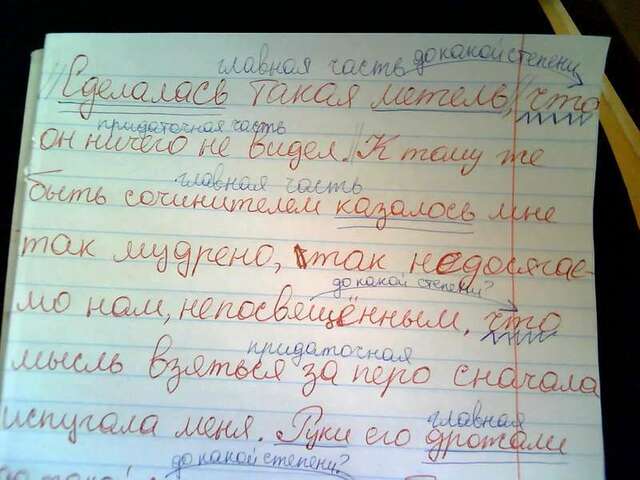 главная часть до какой степени
Сделалась такая метель, что
придаточная часть
он ничего не видел. К тому же
главная часть
быть сочинителем казалось мне
так мудрено, так недосягае-
до какой степени?
мо нам, непосвещённым, что
придаточная
мысль взяться за перо сначала
испугала меня. Руки его дрожали
главная
до какой степени?